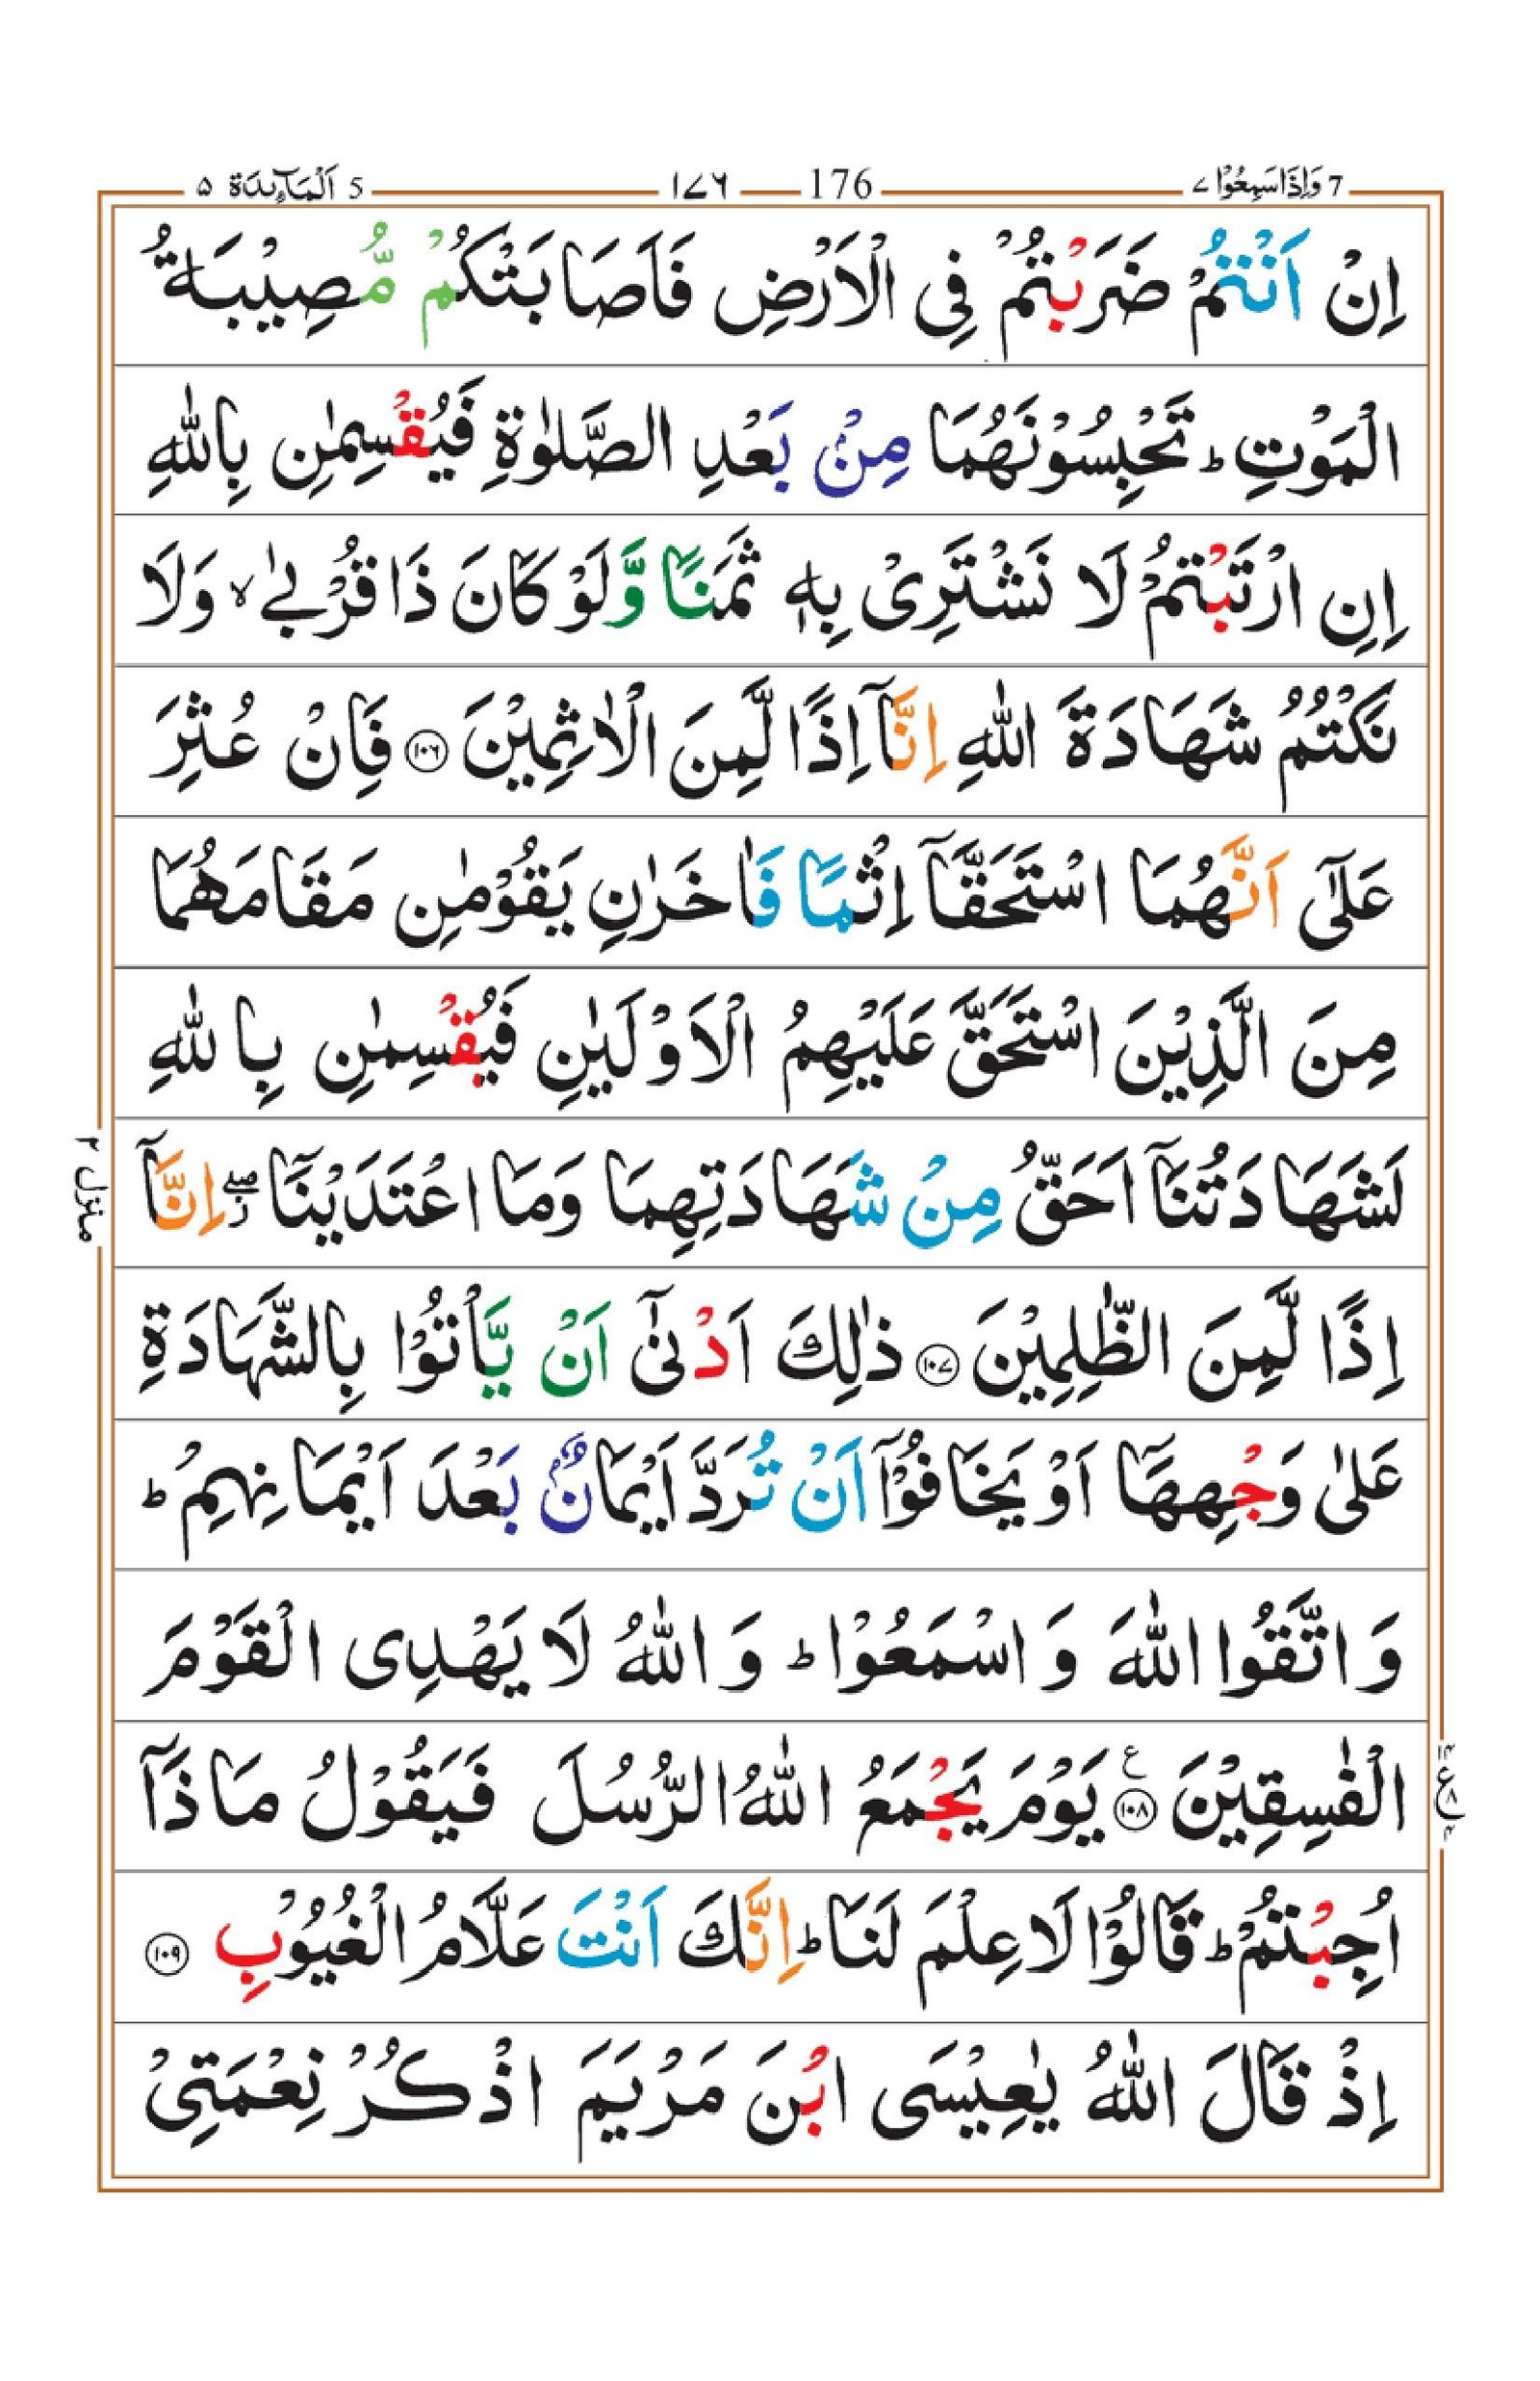 7 وَاِذَا سَمِعُوْا ۷ 176 ۱۷۶ 5 اَلْمَآىِٕدَة ۵
اِنْ اَنْتُمْ ضَرَبْتُمْ فِی الْاَرْضِ فَاَصَابَتْكُمْ مُّصِیْبَةُ
الْمَوْتِ ؕ تَحْبِسُوْنَهُمَا مِنْۢ بَعْدِ الصَّلٰوةِ فَیُقْسِمٰنِ بِاللّٰهِ
اِنِ ارْتَبْتُمْ لَا نَشْتَرِیْ بِهٖ ثَمَنًا وَّلَوْ كَانَ ذَا قُرْبٰی ۙ وَلَا
نَكْتُمُ شَهَادَةَ اللّٰهِ اِنَّاۤ اِذًا لَّمِنَ الْاٰثِمِیْنَ ۝۱۰۶ فَاِنْ عُثِرَ
عَلٰۤی اَنَّهُمَا اسْتَحَقَّاۤ اِثْمًا فَاٰخَرٰنِ یَقُوْمٰنِ مَقَامَهُمَا
مِنَ الَّذِیْنَ اسْتَحَقَّ عَلَیْهِمُ الْاَوْلَیٰنِ فَیُقْسِمٰنِ بِاللّٰهِ
لَشَهَادَتُنَاۤ اَحَقُّ مِنْ شَهَادَتِهِمَا وَمَا اعْتَدَیْنَاۤ ۖؗ اِنَّاۤ
اِذًا لَّمِنَ الظّٰلِمِیْنَ ۝۱۰۷ ذٰلِكَ اَدْنٰۤی اَنْ یَّاْتُوْا بِالشَّهَادَةِ
عَلٰی وَجْهِهَاۤ اَوْ یَخَافُوْۤا اَنْ تُرَدَّ اَیْمَانٌۢ بَعْدَ اَیْمَانِهِمْ ؕ
وَاتَّقُوا اللّٰهَ وَاسْمَعُوْا ؕ وَاللّٰهُ لَا یَهْدِی الْقَوْمَ
الْفٰسِقِیْنَ ۝۱۰۸ ع یَوْمَ یَجْمَعُ اللّٰهُ الرُّسُلَ فَیَقُوْلُ مَاذَاۤ
اُجِبْتُمْ ؕ قَالُوْا لَا عِلْمَ لَنَا ؕ اِنَّكَ اَنْتَ عَلَّامُ الْغُیُوْبِ ۝۱۰۹
اِذْ قَالَ اللّٰهُ یٰعِیْسَی ابْنَ مَرْیَمَ اذْكُرْ نِعْمَتِیْ
منزل ۲